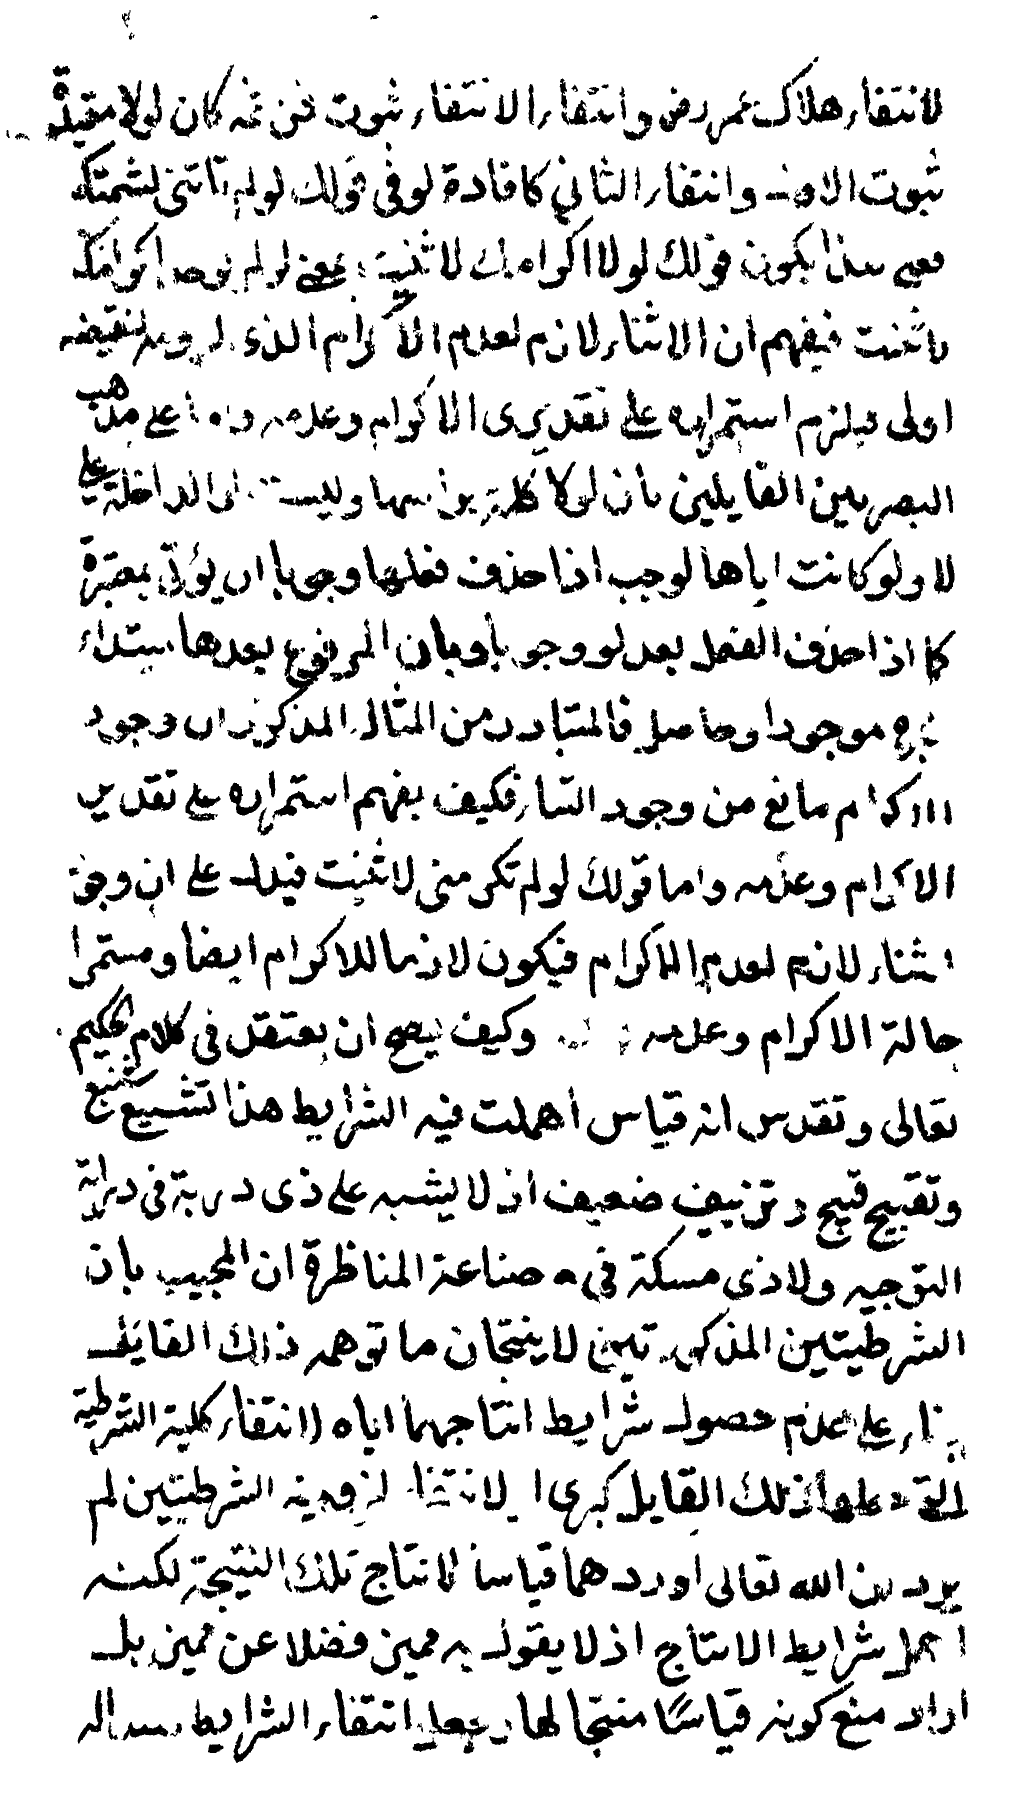 لانتفاء هلاك عمر رض وانتفاء الانتفاء ثبوت فمن ثمه كان لولا مفيدة
ثبوت الاول وانتفاء الثاني كافادة لو في قولك لو لم تاتني لشمتك
فعلى هذا يكون قولك لولا اكرامك لاثنيت بمعنى لو لم يوجد اكرامك
لاثنيت فيفهم ان الاثناء لازم لعدم الاكرام الذي لزومه لنقيضه
اولى فيلزم استمراره على تقديري الاكرام وعدمه واما على مذهب
البصريين القايلين بان لولا كلمة براسها وليست لو الداخلة على
لا ولو كانت اياها لوجب اذا حذف فعلها وجوبا ان يؤتى بمفسرة
كما اذا حذف الفعل بعد لو وجوبا وبان المرفوع بعدها مبتداء
موجود او حاصل فالمتبادر من المثال المذكور ان وجود
الاكرام مانع من وجود الثناء فكيف يفهم استمراره على تقدير
الاكرام وعدمه واما قولك لو لم تكرمني لاثنيت فيدل على ان وجود
الثناء لازم لعدم الاكرام فيكون لازما للاكرام ايضا ومستمرا
حالة الاكرام وعدمه وكيف يصح ان يعتقد في كلام الحكيم
تعالى وتقدس انه قياس اهملت فيه الشرايط هذا تشنيع شنيع
وتقبيح قبيح وتزييف ضعيف اذ لا يشبه على ذي دربة في دراية
التوجيه ولا ذي مسكة في صناعة المناظرة ان المجيب بان
الشرطيتين المذكورتين لا ينتجان ما توهمه ذلك القايل
بناء على عدم حصول شرايط انتاجهما اياه لانتفاء كلية الشرطية
ذلك القايل كبرى لانتفاء لزومية الشرطيتين لم
يرد ان الله تعالى اوردهما قياسا لانتاج تلك النتيجة لكنه
اهمل شرايط الانتاج اذ لا يقول به مميز فضلا عن مميز بل
اراد منع كونه قياسا منتجا لها وجعل انتفاء الشرايط سندا له